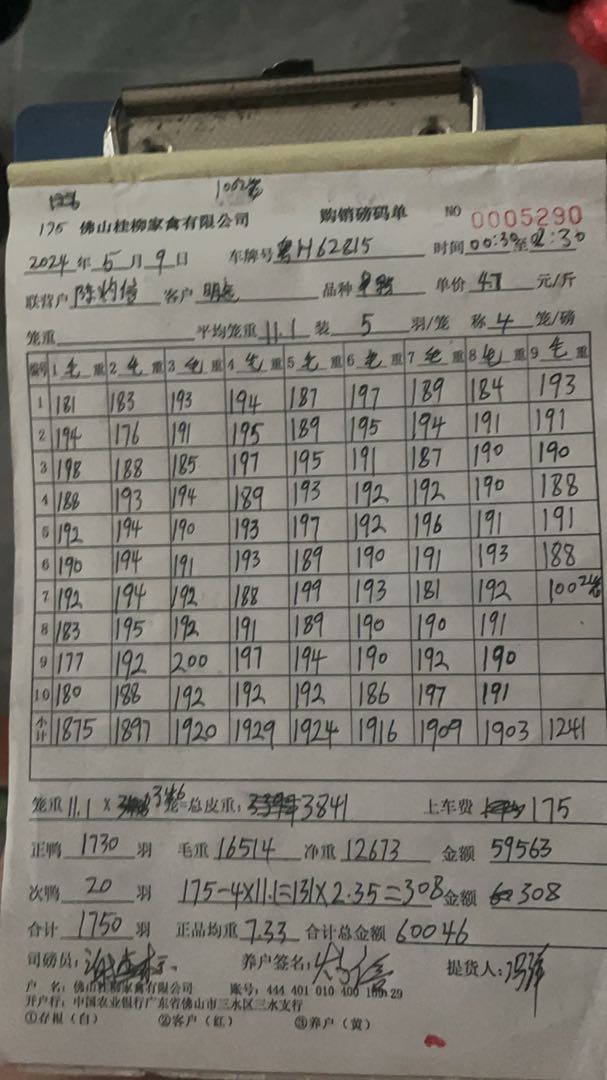 1002毛
175 佛山桂柳家禽有限公司 购销磅码单 NO 0005290
2024 年 5 月 9 日 车牌号 粤H62815 时间 00:30 至 2:30
联营户 客户 品种 单价 4.7 元/斤
笼重 平均笼重 11.1 装 5 羽/笼 称 4 笼/磅
编号 1 毛 重 2 毛 重 3 毛 重 4 毛 重 5 毛 重 6 毛 重 7 毛 重 8 毛 重 9 毛 重
1 181 183 193 194 187 197 189 184 193
2 194 176 191 195 189 195 194 191 191
3 198 188 185 197 195 191 187 190 190
4 188 193 194 189 193 192 192 190 188
5 192 194 190 193 197 192 196 191 191
6 190 194 191 193 189 190 191 193 188
7 192 194 192 188 199 193 181 192 100 2毛
8 183 195 192 191 189 190 190 191
9 177 192 200 197 194 190 192 190
10 180 188 192 192 192 186 197 191
小计 1875 1897 1920 1929 1924 1916 1909 1903 1241
笼重 11.1 X 346 笼=总皮重: 3841 上车费 175
正鸭 1730 羽 毛重 16514 净重 12673 金额 59563
次鸭 20 羽 175-4×11.1=131×2.35=308 金额 308
合计 1750 羽 正品均重 7.33 合计总金额 60046
司磅员: 养户签名: 提货人:
户 名: 佛山桂柳家禽有限公司 账号: 444 401 010 400 29
开户行: 中国农业银行广东省佛山市三水区三水支行
①存根（白） ②客户（红） ③养户（黄）